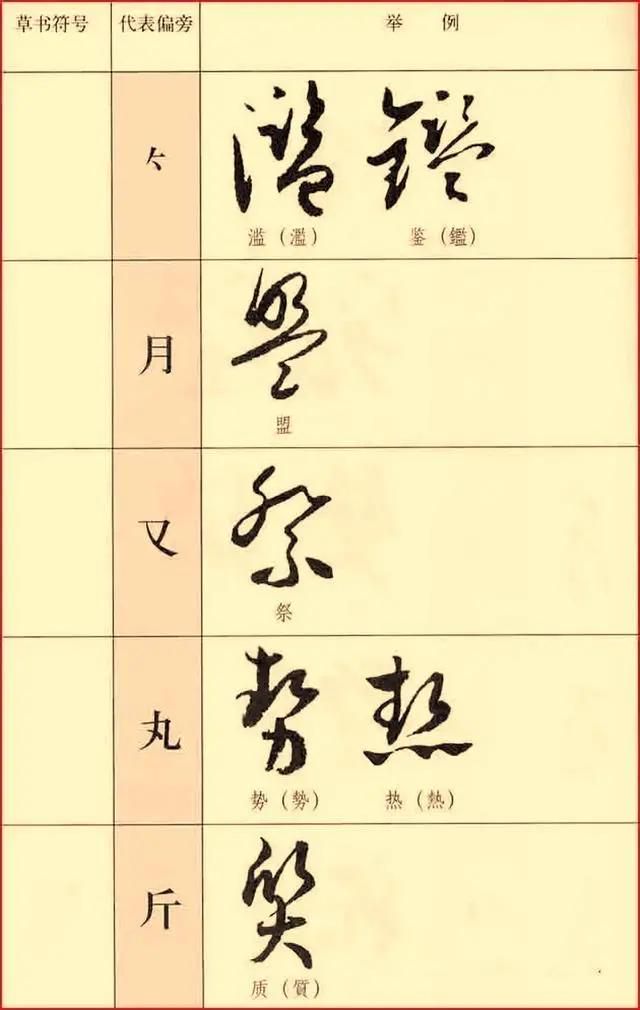 草书符号 代表偏旁 举例
𠂉
滥（濫） 鉴（鑑）
月
盟
又
祭
丸
势（勢） 热（熱）
斤
质（質）